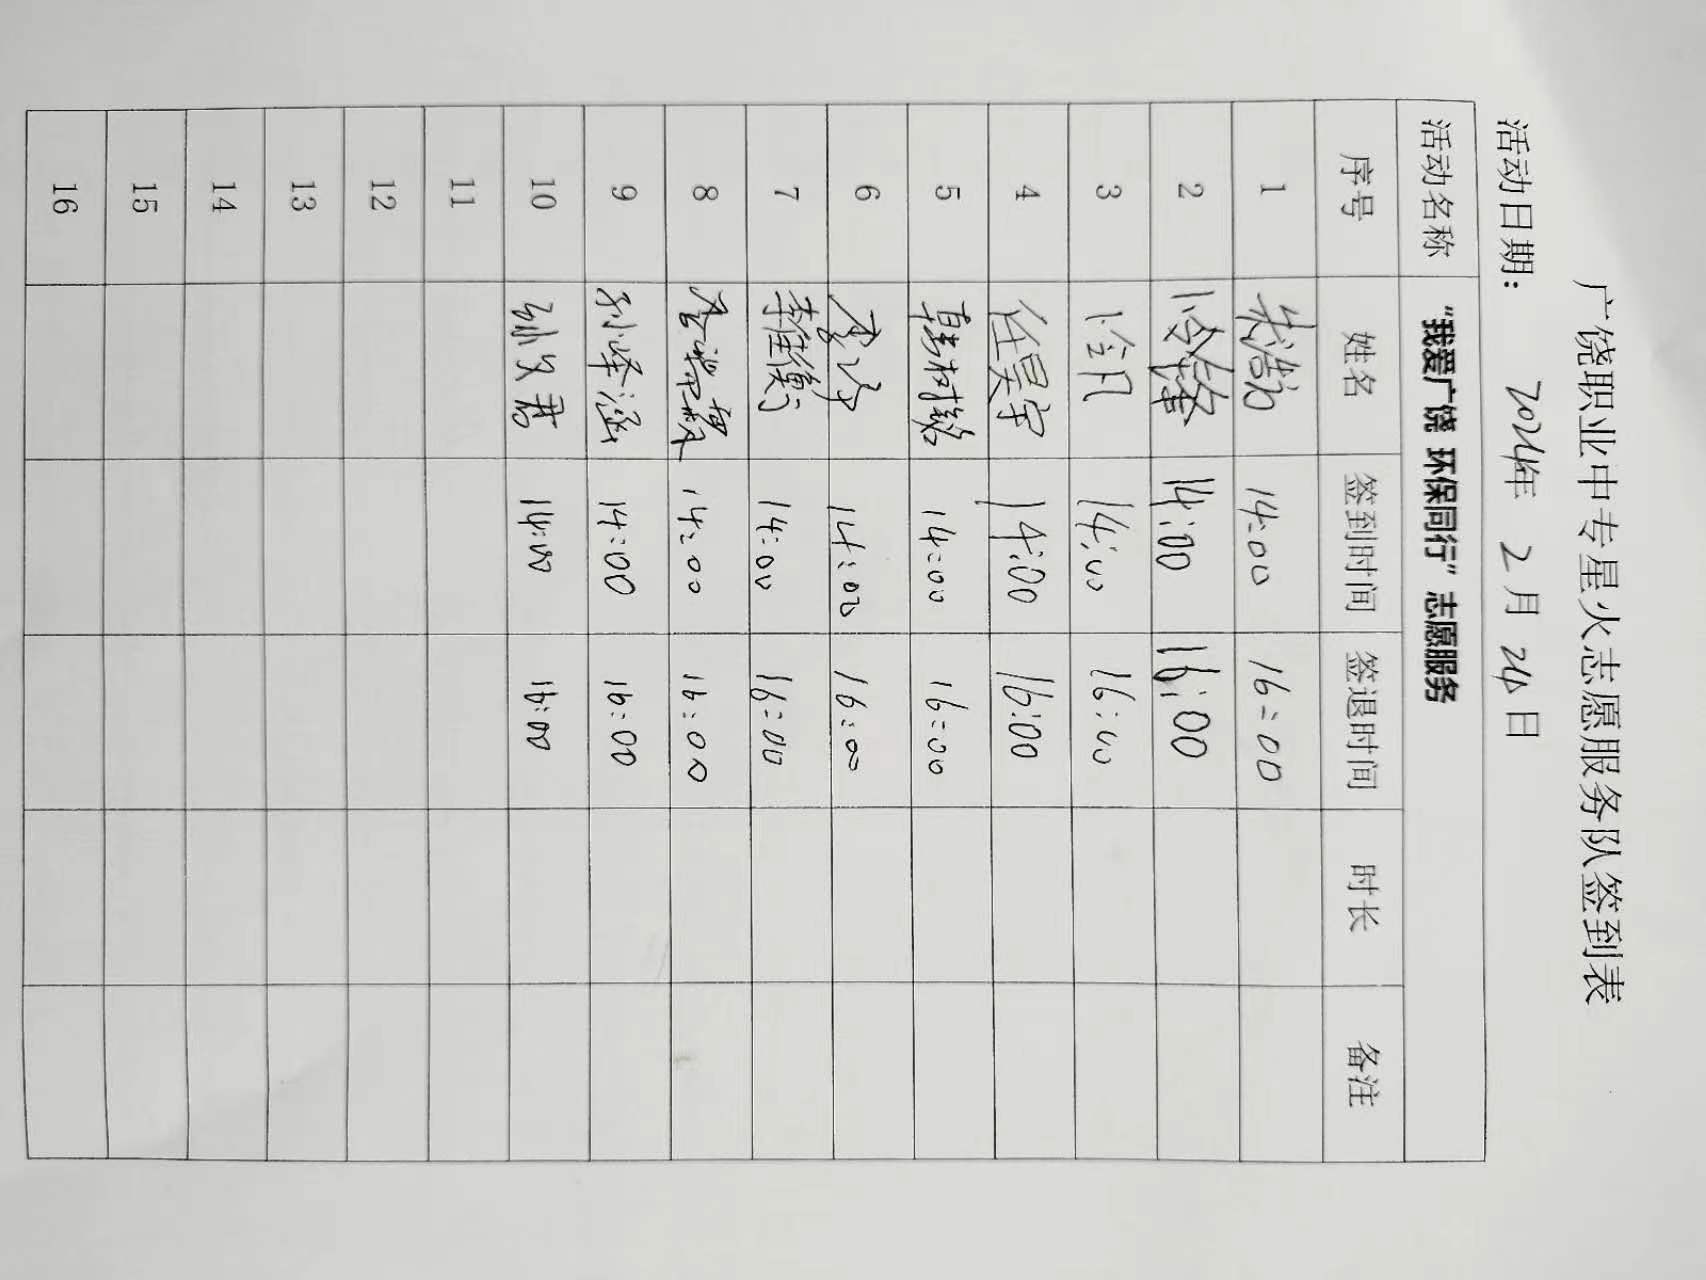 广饶职业中专星火志愿服务队签到表
活动日期: 2024年 2月 24日
活动名称 “我爱广饶 环保同行”志愿服务
序号 姓名 签到时间 签退时间 时长 备注
1 14:00 16:00
2 14:00 16:00
3 14:00 16:00
4 任昊宇 14:00 16:00
5 14:00 16:00
6 14:00 16:00
7 14:00 16:00
8 14:00 16:00
9 孙泽涵 14:00 16:00
10 孙文君 14:00 16:00
11
12
13
14
15
16